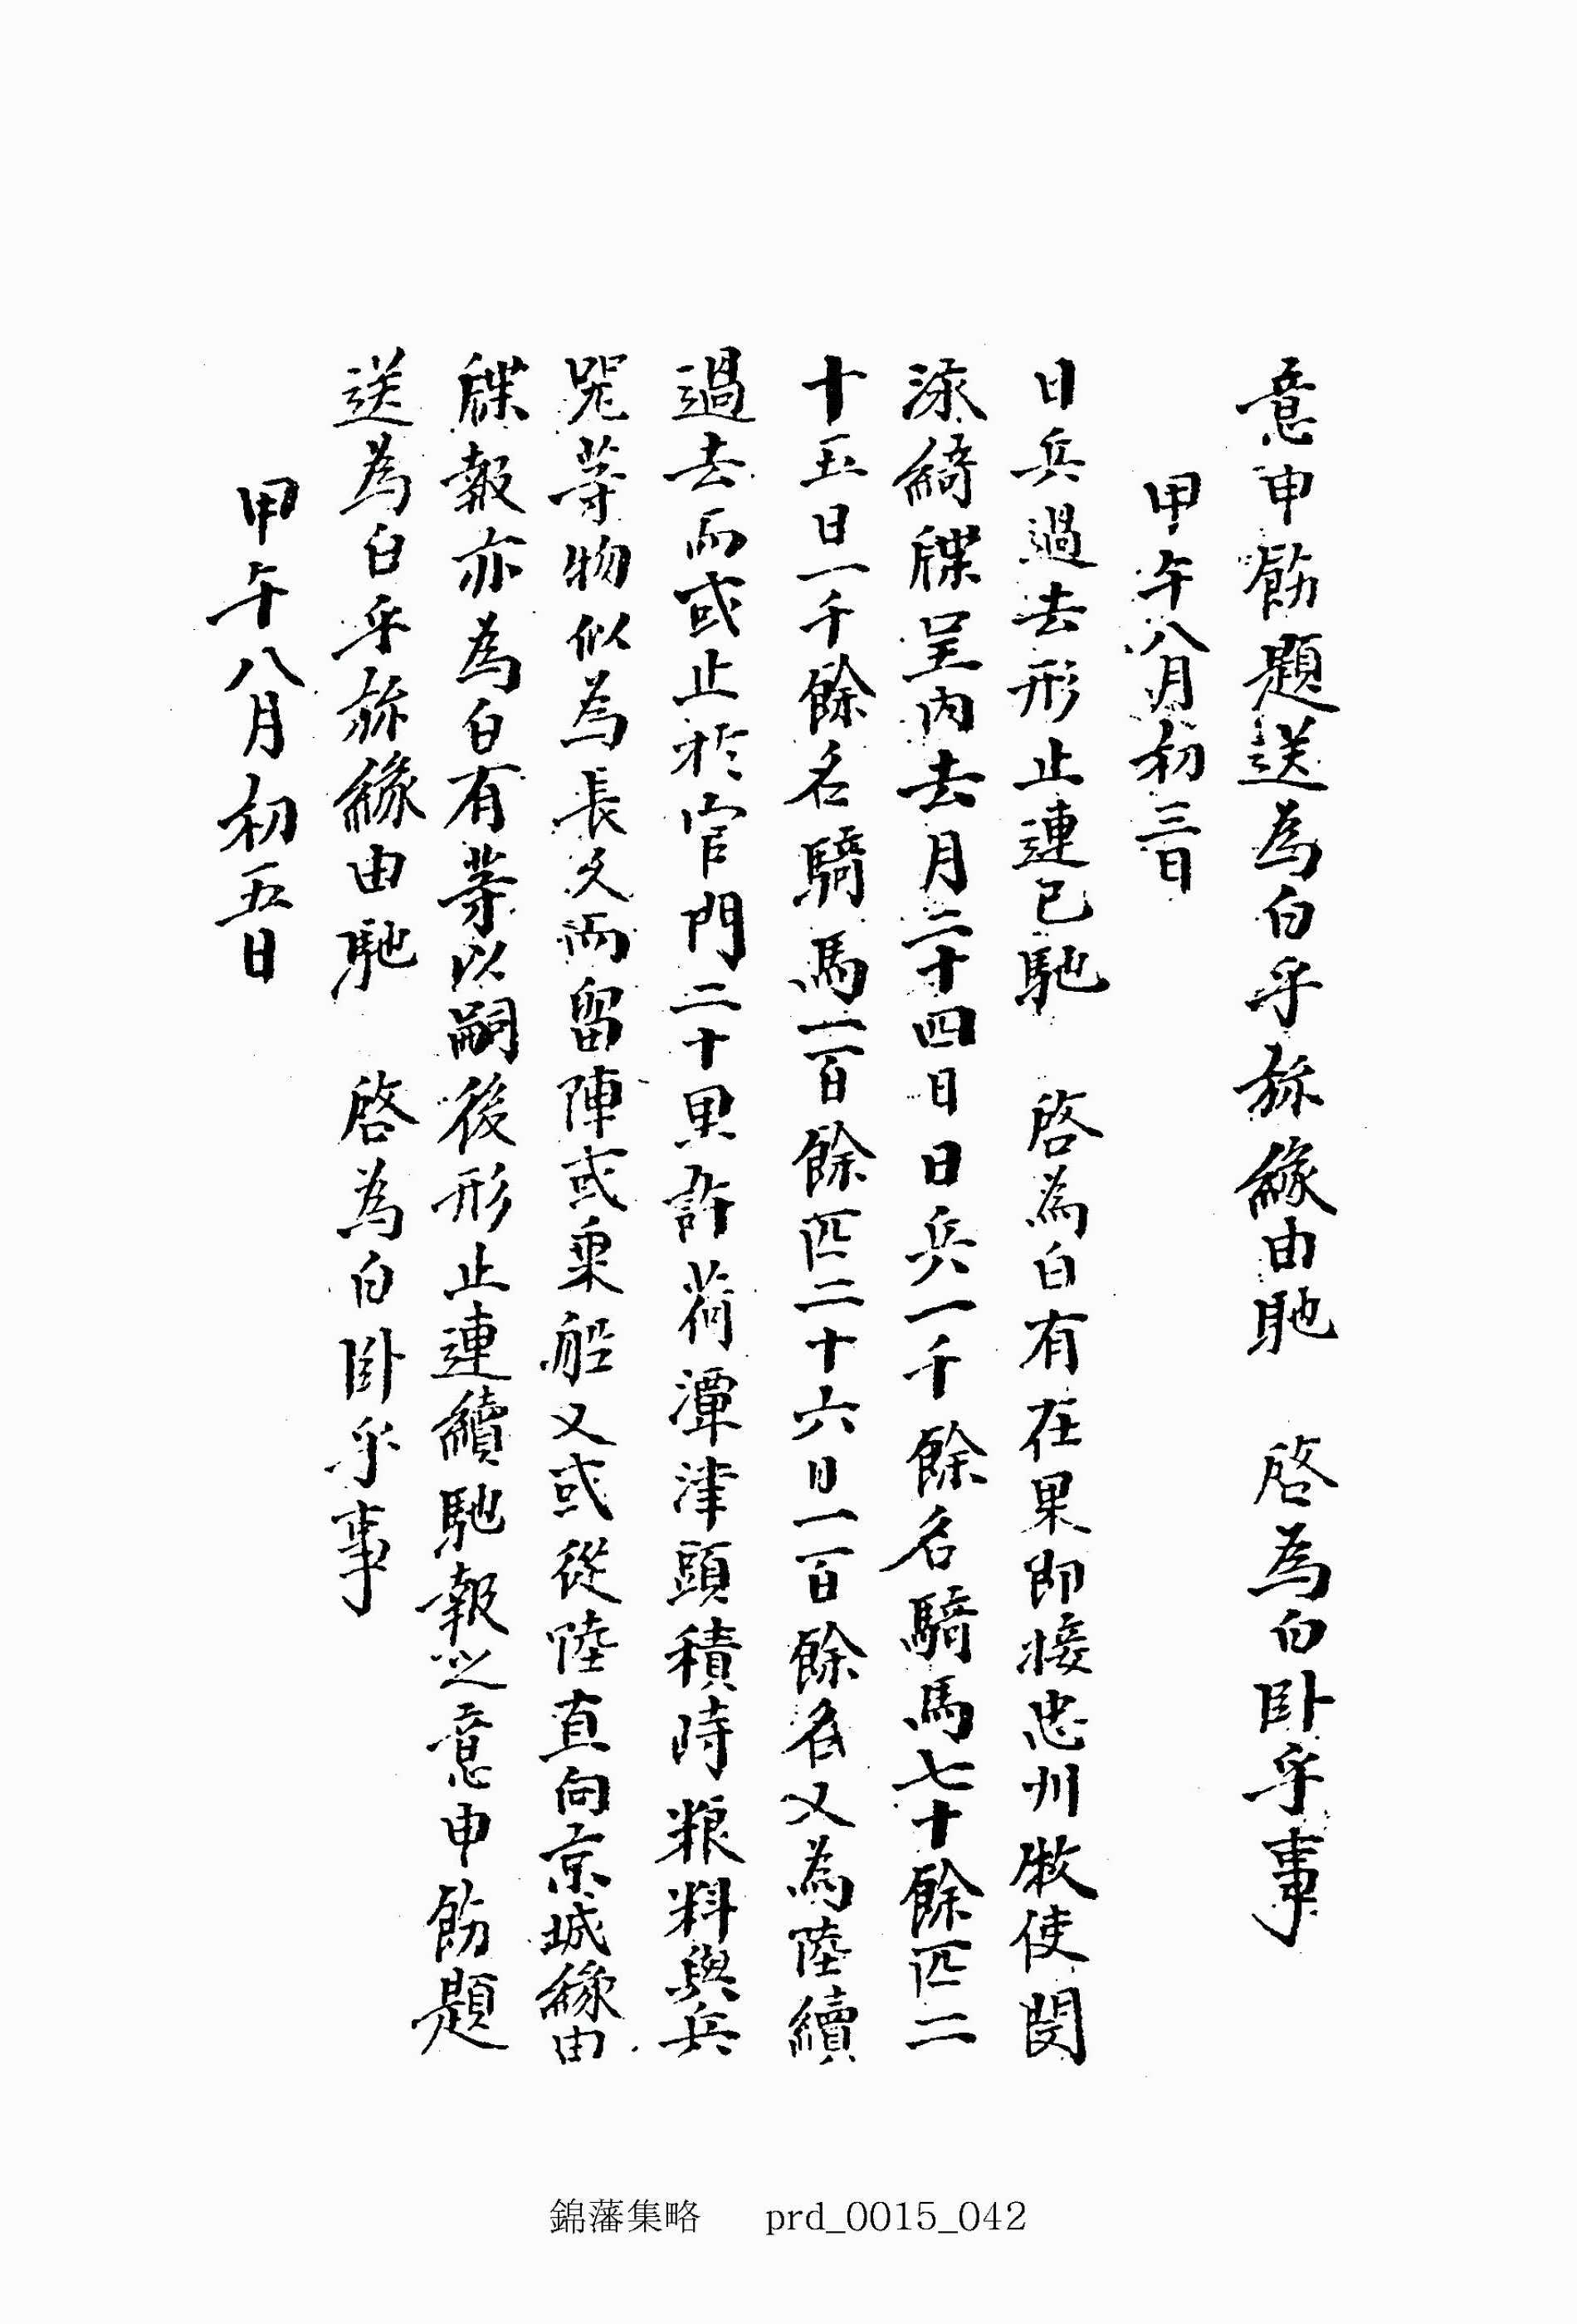 意申飭題送爲白乎旀緣由馳　啓爲白卧乎事
甲午八月初三日
日兵過去形止連已馳　啓爲白有在果卽接忠州牧使閔
泳綺牒呈內去月二十四日日兵一千餘名騎馬七十餘匹二
十五日一千餘名騎馬一百餘匹二十六日一百餘名又爲陸續
過去而或止於官門二十里許荷潭津頭積峙粮料與兵
器等物似爲長久而留陣或乘船又或從陸直向京城緣由
牒報亦爲白有等以嗣後形止連續馳報之意申飭題
送爲白乎旀緣由馳　啓爲白卧乎事
甲午八月初五日
錦藩集略　prd_0015_042